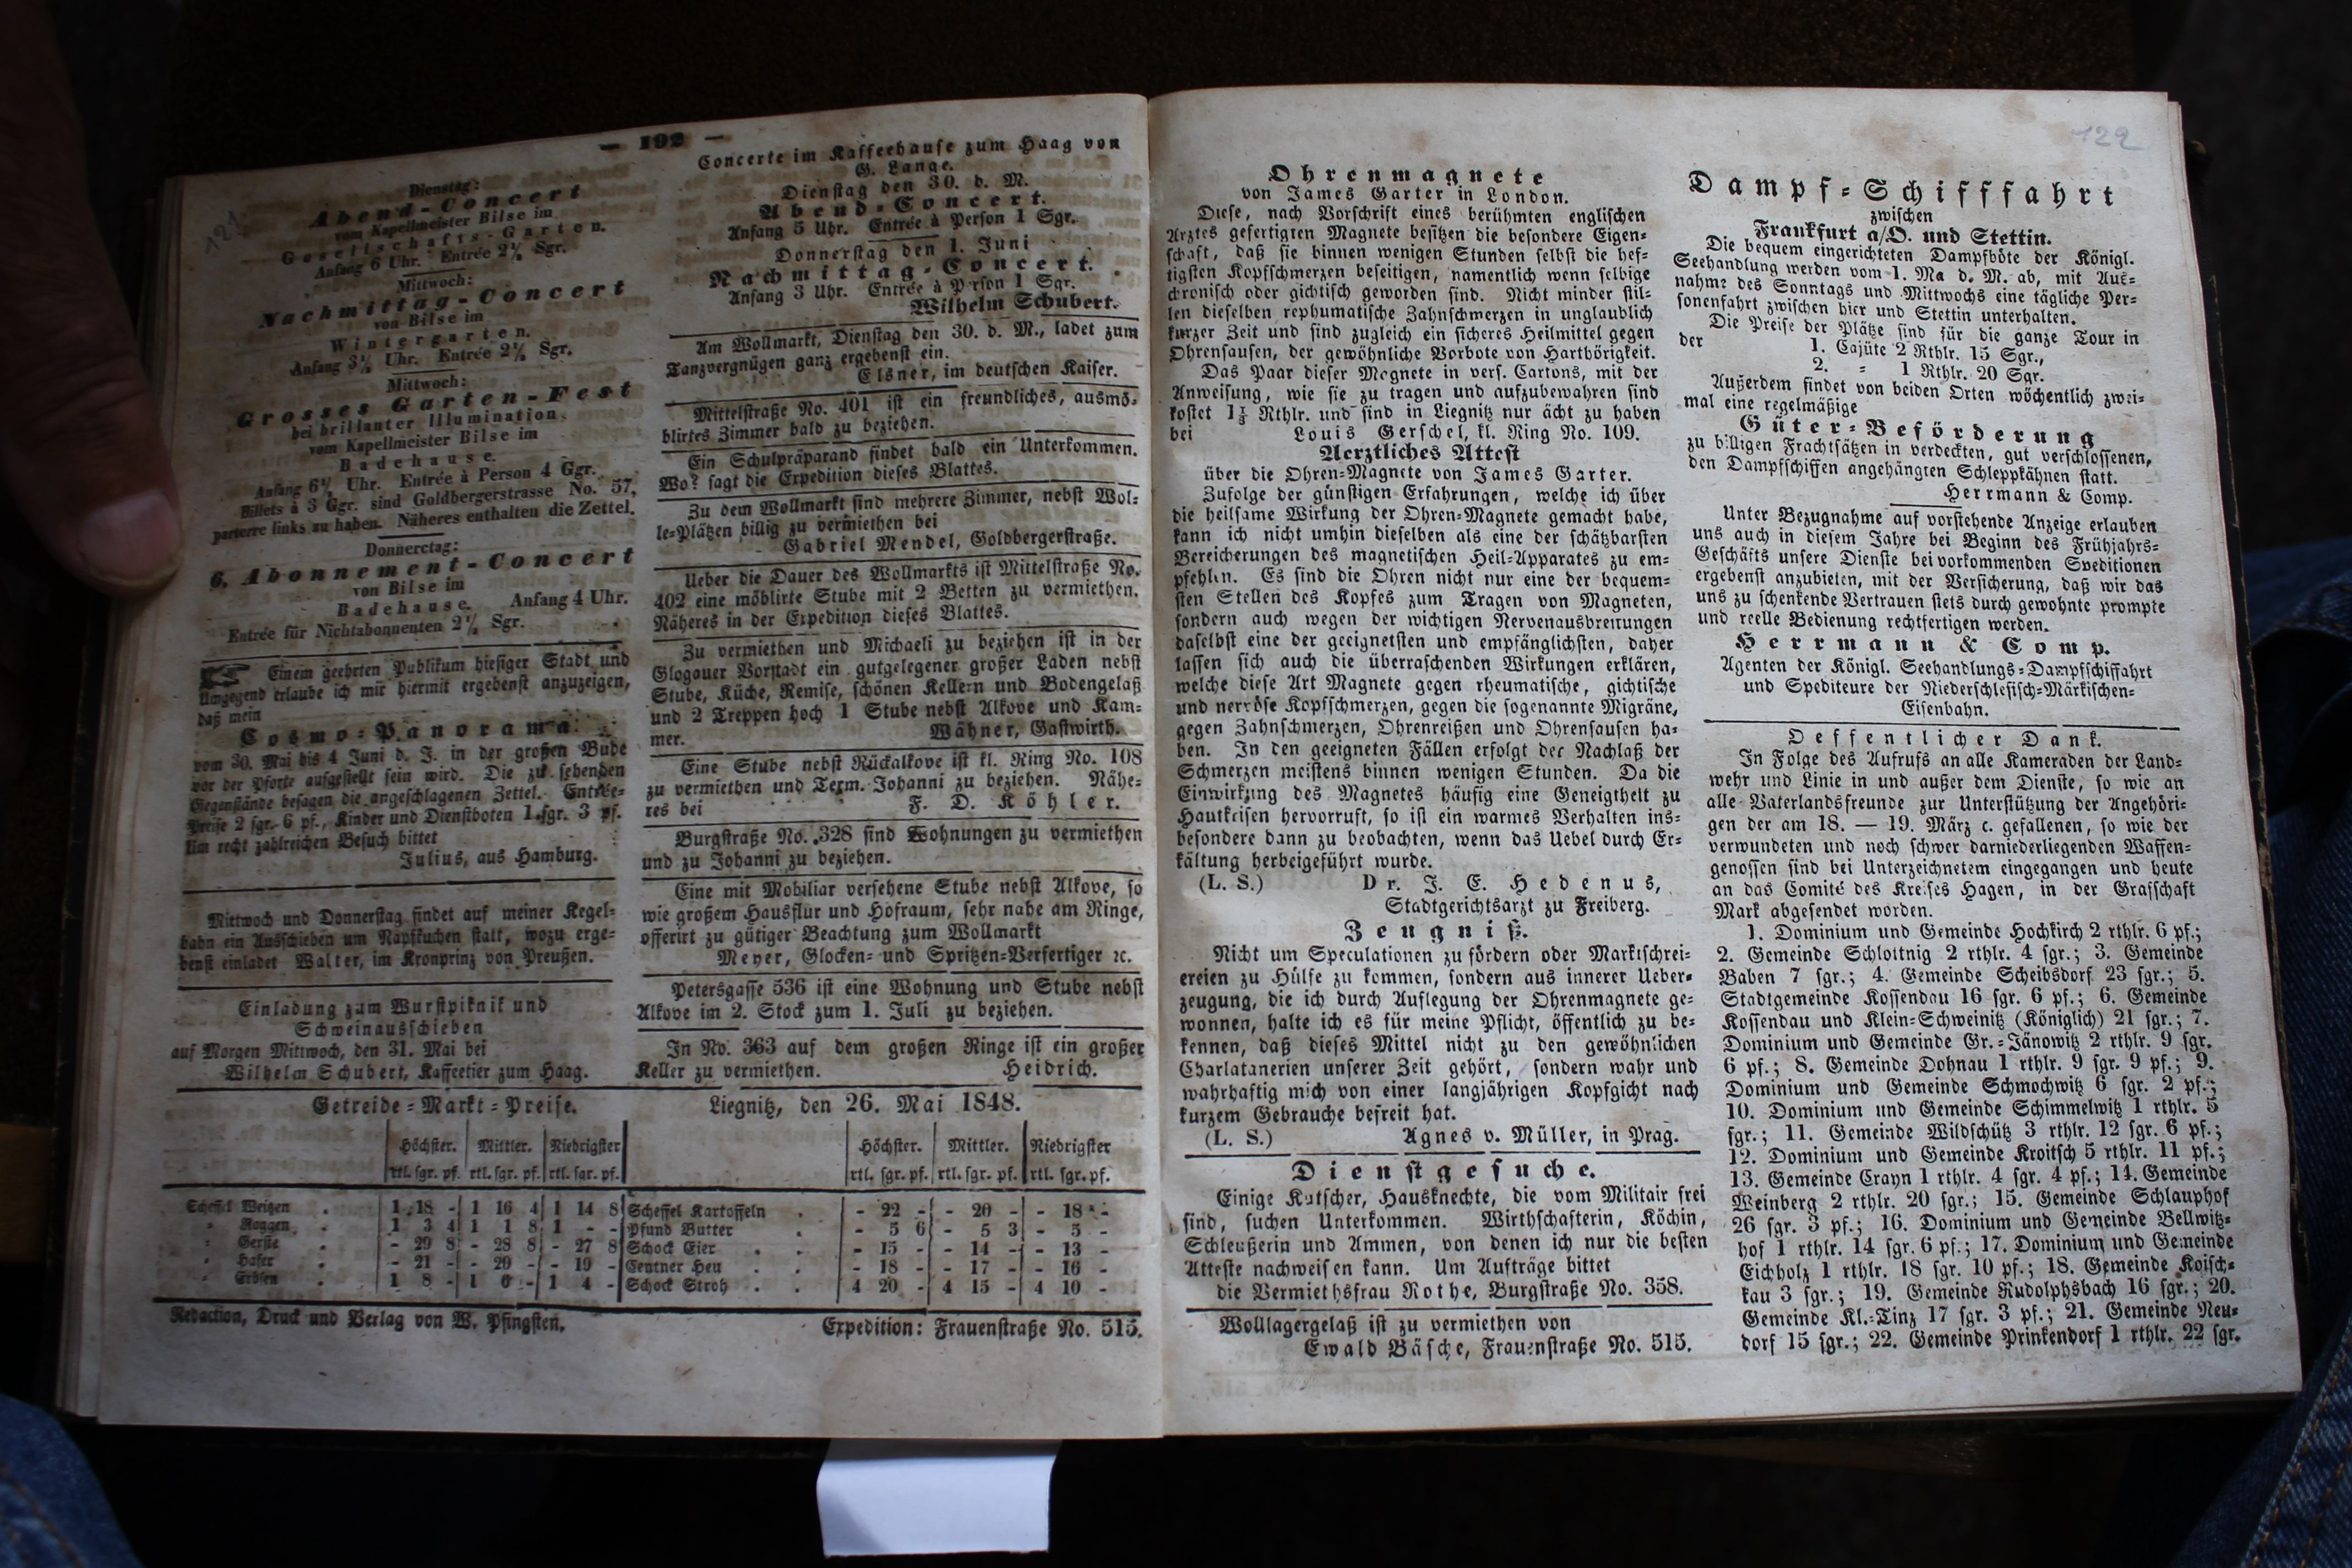 — 192 —
121
Dienstag:
Abend-Concert
vom Kapellmeister Bilse im
Gesellschafts-Garten.
Anfang 6 Uhr. Entrée 2½ Sgr.
Mittwoch:
Nachmittag-Concert
von Bilse im
Wintergarten.
Anfang 3½ Uhr. Entrée 2½ Sgr.
Mittwoch:
Grosses Garten-Fest
bei brillanter Illumination,
vom Kapellmeister Bilse im
Badehause.
Anfang 6½ Uhr. Entrée à Person 4 Ggr.
Billets à 3 Ggr. sind Goldbergerstrasse No. 57,
parterre links zu haben. Näheres enthalten die Zettel.
Donnerstag:
6. Abonnement-Concert
von Bilse im
Badehause. Anfang 4 Uhr.
Entrée für Nichtabonnenten 2½ Sgr.
Einem geehrten Publikum hiesiger Stadt und
Umgegend erlaube ich mir hiermit ergebenst anzuzeigen,
daß mein
Cosmo-Panorama
vom 30. Mai bis 4 Juni d. J. in der großen Bude
vor der Pforte aufgestellt sein wird. Die zu sehenden
Gegenstände besagen die angeschlagenen Zettel. Entrée-
Preise 2 sgr. 6 pf., Kinder und Dienstboten 1 sgr. 3 pf.
Um recht zahlreichen Besuch bittet
Julius, aus Hamburg.
Mittwoch und Donnerstag findet auf meiner Kegel-
bahn ein Ausschieben um Napfkuchen statt, wozu erge-
benst einladet Walter, im Kronprinz von Preußen.
Einladung zum Wurstpiknik und
Schweinausschieben
auf Morgen Mittwoch, den 31. Mai bei
Wilhelm Schubert, Kaffeetier zum Haag.
Concerte im Kaffeehause zum Haag von
G. Lange.
Dienstag den 30. d. M.
Abend-Concert.
Anfang 5 Uhr. Entrée à Person 1 Sgr.
Donnerstag den 1. Juni
Nachmittag-Concert.
Anfang 3 Uhr. Entrée à P rson 1 Sgr.
Wilhelm Schubert.
Am Wollmarkt, Dienstag den 30. d. M., ladet zum
Tanzvergnügen ganz ergebenst ein.
Elsner, im deutschen Kaiser.
Mittelstraße No. 401 ist ein freundliches, ausmö-
blirtes Zimmer bald zu beziehen.
Ein Schulpräparand findet bald ein Unterkommen.
Wo? sagt die Expedition dieses Blattes.
Zu dem Wollmarkt sind mehrere Zimmer, nebst Wol-
le-Plätzen billig zu vermiethen bei
Gabriel Mendel, Goldbergerstraße.
Ueber die Dauer des Wollmarkts ist Mittelstraße No.
402 eine möblirte Stube mit 2 Betten zu vermiethen.
Näheres in der Expedition dieses Blattes.
Zu vermiethen und Michaeli zu beziehen ist in der
Glogauer Vorstadt ein gutgelegener großer Laden nebst
Stube, Küche, Remise, schönen Kellern und Bodengelaß
und 2 Treppen hoch 1 Stube nebst Alkove und Kam-
mer. Wähner, Gastwirth.
Eine Stube nebst Rückalkove ist kl. Ring No. 108
zu vermiethen und Term. Johanni zu beziehen. Nähe-
res bei F. D. Köhler.
Burgstraße No. 328 sind Wohnungen zu vermiethen
und zu Johanni zu beziehen.
Eine mit Mobiliar versehene Stube nebst Alkove, so
wie großem Hausflur und Hofraum, sehr nahe am Ringe,
offerirt zu gütiger Beachtung zum Wollmarkt
Meyer, Glocken- und Spritzen-Verfertiger ꝛc.
Petersgasse 536 ist eine Wohnung und Stube nebst
Alkove im 2. Stock zum 1. Juli zu beziehen.
In No. 363 auf dem großen Ringe ist ein großer
Keller zu vermiethen. Heidrich.
Getreide-Markt-Preise. Liegnitz, den 26. Mai 1848.
Höchster. Mittler. Niedrigster Höchster. Mittler. Niedrigster
rtl. sgr. pf. rtl. sgr. pf. rtl. sgr. pf. rtl. sgr. pf. rtl. sgr. pf. rtl. sgr. pf.
Scheffel Weitzen . 1 18 - 1 16 4 1 14 8 Scheffel Kartoffeln . - 22 - - 20 - - 18 -
" Roggen . 1 3 4 1 1 8 1 - - Pfund Butter . - 5 6 - 5 3 - 5 -
" Gerste . - 29 8 - 28 8 - 27 8 Schock Eier . . - 15 - - 14 - - 13 -
" Hafer . - 21 - - 20 - - 19 - Centner Heu . . - 18 - - 17 - - 16 -
" Erbsen . 1 8 - 1 6 - 1 4 - Schock Stroh . . 4 20 - 4 15 - 4 10 -
Redaction, Druck und Verlag von W. Pfingsten. Expedition: Frauenstraße No. 515.
122
Ohrenmagnete
von James Garter in London.
Diese, nach Vorschrift eines berühmten englischen
Arztes gefertigten Magnete besitzen die besondere Eigen-
schaft, daß sie binnen wenigen Stunden selbst die hef-
tigsten Kopfschmerzen beseitigen, namentlich wenn selbige
chronisch oder gichtisch geworden sind. Nicht minder stil-
len dieselben rephumatische Zahnschmerzen in unglaublich
kurzer Zeit und sind zugleich ein sicheres Heilmittel gegen
Ohrensausen, der gewöhnliche Vorbote von Harthörigkeit.
Das Paar dieser Magnete in vers. Cartons, mit der
Anweisung, wie sie zu tragen und aufzubewahren sind
kostet 1⅓ Rthlr. und sind in Liegnitz nur ächt zu haben
bei Louis Gerschel, kl. Ring No. 109.
Aerztliches Attest
über die Ohren-Magnete von James Garter.
Zufolge der günstigen Erfahrungen, welche ich über
die heilsame Wirkung der Ohren-Magnete gemacht habe,
kann ich nicht umhin dieselben als eine der schätzbarsten
Bereicherungen des magnetischen Heil-Apparates zu em-
pfehlen. Es sind die Ohren nicht nur eine der bequem-
sten Stellen des Kopfes zum Tragen von Magneten,
sondern auch wegen der wichtigen Nervenausbreitungen
daselbst eine der geeignetsten und empfänglichsten, daher
lassen sich auch die überraschenden Wirkungen erklären,
welche diese Art Magnete gegen rheumatische, gichtische
und nervöse Kopfschmerzen, gegen die sogenannte Migräne,
gegen Zahnschmerzen, Ohrenreißen und Ohrensausen ha-
ben. In den geeigneten Fällen erfolgt der Nachlaß der
Schmerzen meistens binnen wenigen Stunden. Da die
Einwirkung des Magnetes häufig eine Geneigtheit zu
Hautkrisen hervorruft, so ist ein warmes Verhalten ins-
besondere dann zu beobachten, wenn das Uebel durch Er-
kältung herbeigeführt wurde.
(L. S.) Dr. J. E. Hedenus,
Stadtgerichtsarzt zu Freiberg.
Zeugniß.
Nicht um Speculationen zu fördern oder Marktschrei-
ereien zu Hülfe zu kommen, sondern aus innerer Ueber-
zeugung, die ich durch Auflegung der Ohrenmagnete ge-
wonnen, halte ich es für meine Pflicht, öffentlich zu be-
kennen, daß dieses Mittel nicht zu den gewöhnlichen
Charlatanerien unserer Zeit gehört, sondern wahr und
wahrhaftig mich von einer langjährigen Kopfgicht nach
kurzem Gebrauche befreit hat.
(L. S.) Agnes v. Müller, in Prag.
Dienstgesuche.
Einige Kutscher, Hausknechte, die vom Militair frei
sind, suchen Unterkommen. Wirthschafterin, Köchin,
Schleußerin und Ammen, von denen ich nur die besten
Atteste nachweisen kann. Um Aufträge bittet
die Vermiethsfrau Rothe, Burgstraße No. 358.
Wollagergelaß ist zu vermiethen von
Ewald Bäsche, Frauenstraße No. 515.
Dampf-Schifffahrt
zwischen
Frankfurt a/O. und Stettin.
Die bequem eingerichteten Dampfböte der Königl.
Seehandlung werden vom 1. Ma d. M. ab, mit Aus-
nahme des Sonntags und Mittwochs eine tägliche Per-
sonenfahrt zwischen hier und Stettin unterhalten.
Die Preise der Plätze sind für die ganze Tour in
der 1. Cajüte 2 Rthlr. 15 Sgr.,
2. " 1 Rthlr. 20 Sgr.
Außerdem findet von beiden Orten wöchentlich zwei-
mal eine regelmäßige
Güter-Beförderung
zu billigen Frachtsätzen in verdeckten, gut verschlossenen,
den Dampfschiffen angehängten Schleppkähnen statt.
Herrmann & Comp.
Unter Bezugnahme auf vorstehende Anzeige erlauben
uns auch in diesem Jahre bei Beginn des Frühjahrs-
Geschäfts unsere Dienste bei vorkommenden Speditionen
ergebenst anzubieten, mit der Versicherung, daß wir das
uns zu schenkende Vertrauen stets durch gewohnte prompte
und reelle Bedienung rechtfertigen werden.
Herrmann & Comp.
Agenten der Königl. Seehandlungs-Dampfschiffahrt
und Spediteure der Niederschlesisch-Märkischen-
Eisenbahn.
Oeffentlicher Dank.
In Folge des Aufrufs an alle Kameraden der Land-
wehr und Linie in und außer dem Dienste, so wie an
alle Vaterlandsfreunde zur Unterstützung der Angehöri-
gen der am 18. — 19. März c. gefallenen, so wie der
verwundeten und noch schwer darniederliegenden Waffen-
genossen sind bei Unterzeichnetem eingegangen und heute
an das Comité des Kreises Hagen, in der Grafschaft
Mark abgesendet worden.
1. Dominium und Gemeinde Hochkirch 2 rthlr. 6 pf.;
2. Gemeinde Schloitnig 2 rthlr. 4 sgr.; 3. Gemeinde
Baben 7 sgr.; 4. Gemeinde Scheibsdorf 23 sgr.; 5.
Stadtgemeinde Kossendau 16 sgr. 6 pf.; 6. Gemeinde
Kossendau und Klein-Schweinitz (Königlich) 21 sgr.; 7.
Dominium und Gemeinde Gr.-Jänowitz 2 rthlr. 9 sgr.
6 pf.; 8. Gemeinde Dohnau 1 rthlr. 9 sgr. 9 pf.; 9.
Dominium und Gemeinde Schmochwitz 6 sgr. 2 pf.;
10. Dominium und Gemeinde Schimmelwitz 1 rthlr. 5
sgr.; 11. Gemeinde Wildschütz 3 rthlr. 12 sgr. 6 pf.;
12. Dominium und Gemeinde Kroitsch 5 rthlr. 11 pf.;
13. Gemeinde Crayn 1 rthlr. 4 sgr. 4 pf.; 14. Gemeinde
Weinberg 2 rthlr. 20 sgr.; 15. Gemeinde Schlauphof
26 sgr. 3 pf.; 16. Dominium und Gemeinde Bellwitz-
hof 1 rthlr. 14 sgr. 6 pf.; 17. Dominium und Gemeinde
Eichholz 1 rthlr. 18 sgr. 10 pf.; 18. Gemeinde Koisch-
kau 3 sgr.; 19. Gemeinde Rudolphsbach 16 sgr.; 20.
Gemeinde Kl.-Tinz 17 sgr. 3 pf.; 21. Gemeinde Neu-
dorf 15 sgr.; 22. Gemeinde Prinkendorf 1 rthlr. 22 sgr.